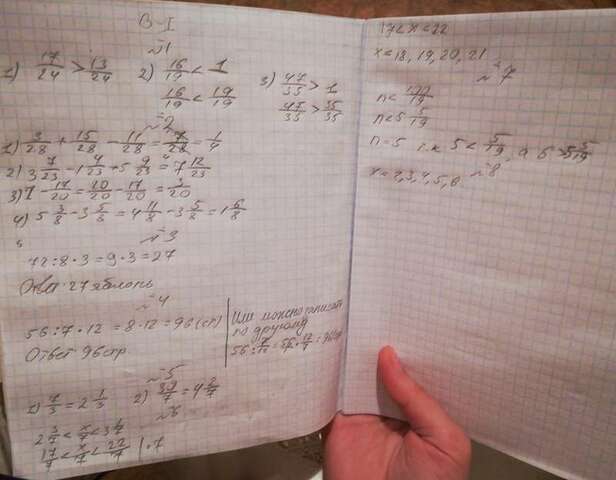 В-I
№1
1) 17/24 > 13/24 2) 16/19 < 1 3) 47/35 > 1
16/19 < 19/19 47/35 > 35/35
№2
1) 3/28 + 15/28 - 11/28 = 7/28 = 1/4
2) 3 7/23 - 1 4/23 + 5 9/23 = 7 12/23
3) 1 - 17/20 = 20/20 - 17/20 = 3/20
4) 5 3/8 - 3 5/8 = 4 11/8 - 3 5/8 = 1 6/8
№3
72:8·3=9·3=27
Ответ: 27 яблонь
№4
56:7·12=8·12=96(ст)
Ответ 96стр.
Или можно записать
по другому
№5
1) 7/3 = 2 1/3 2)
№6
17/7 < x/7 < 22/7 | ·7
17 < x < 22
x = 18, 19, 20, 21
№7
n < 100/19
n < 5 5/19
n = 5 т.к 5 < 5 5/19, а 6 > 5 5/19
№8
x = 2,3,4,5,6.